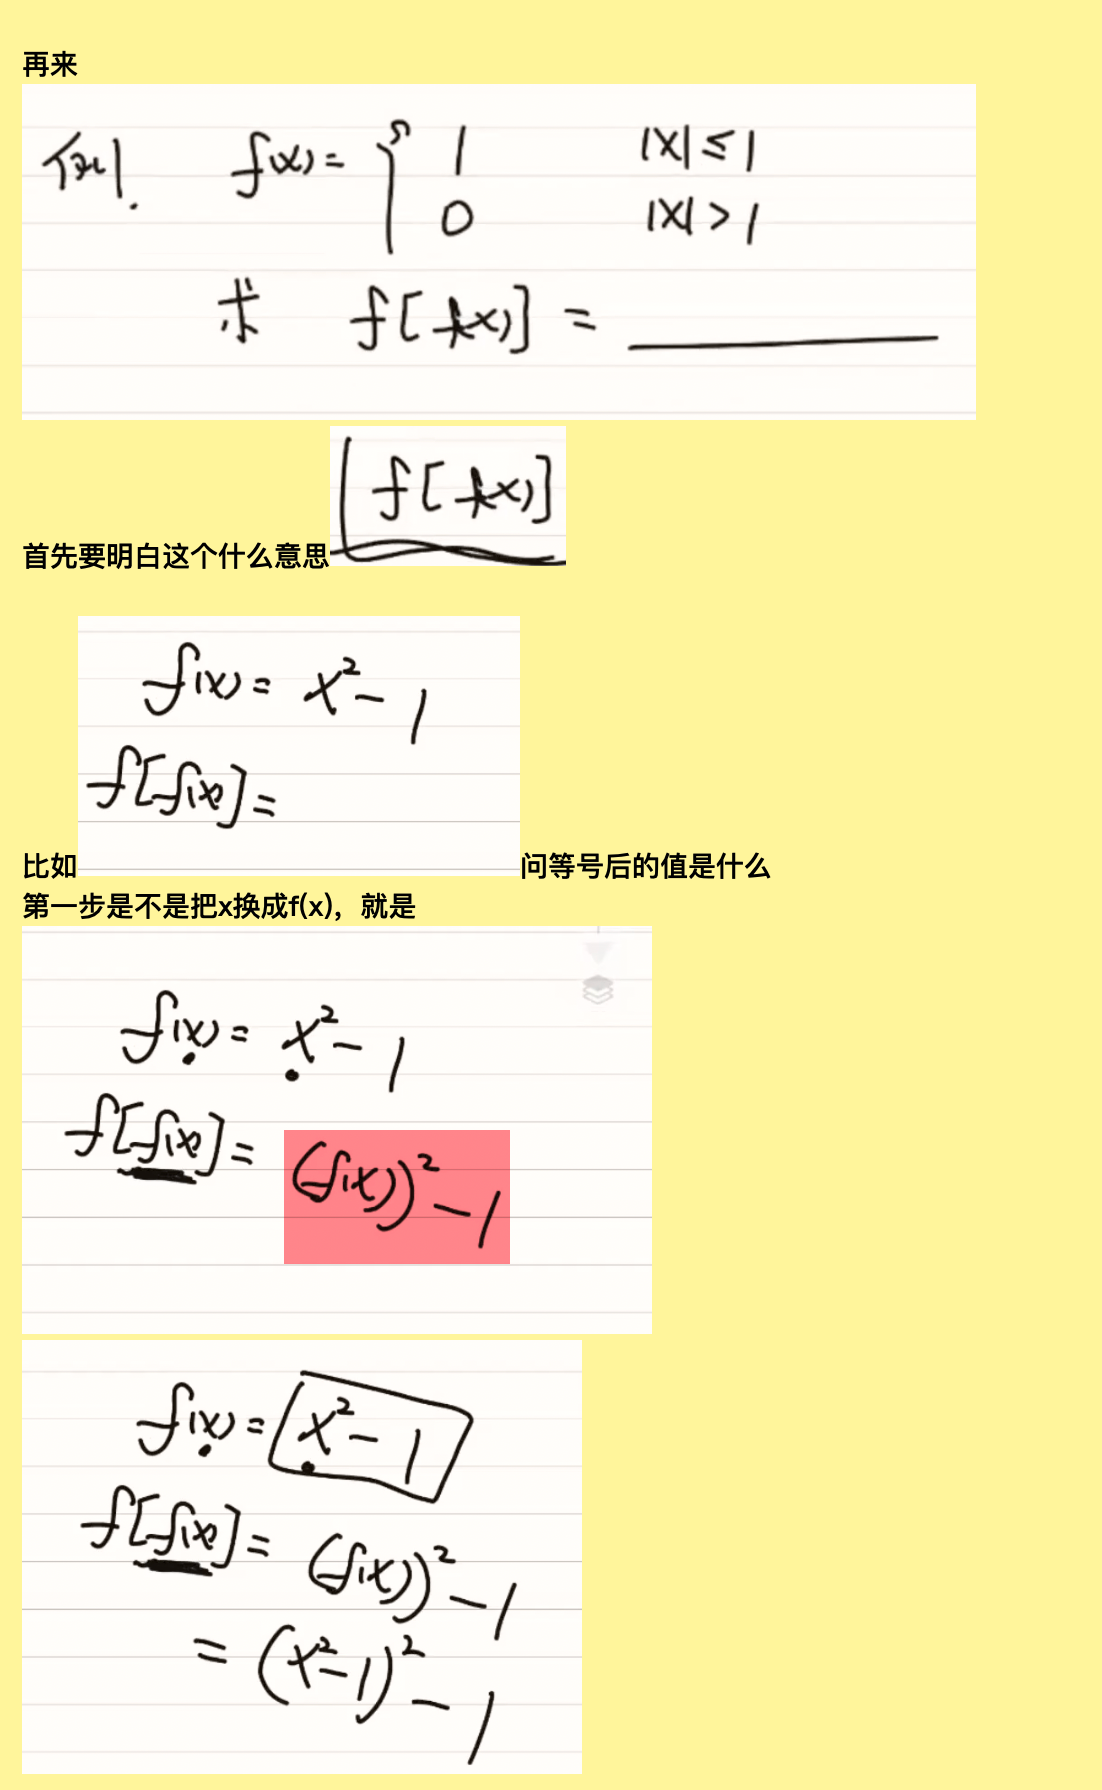 再来
例1. f(x)= { 1 |x|≤1
0 |x|>1
求 f[f(x)] = ________
首先要明白这个什么意思 f[f(x)]
f(x)= x²-1
f[f(x)]=
比如 问等号后的值是什么
第一步是不是把x换成f(x)，就是
f(x)= x²-1
f[f(x)]= (f(x))²-1
f(x)= x²-1
f[f(x)]= (f(x))²-1
= (x²-1)²-1